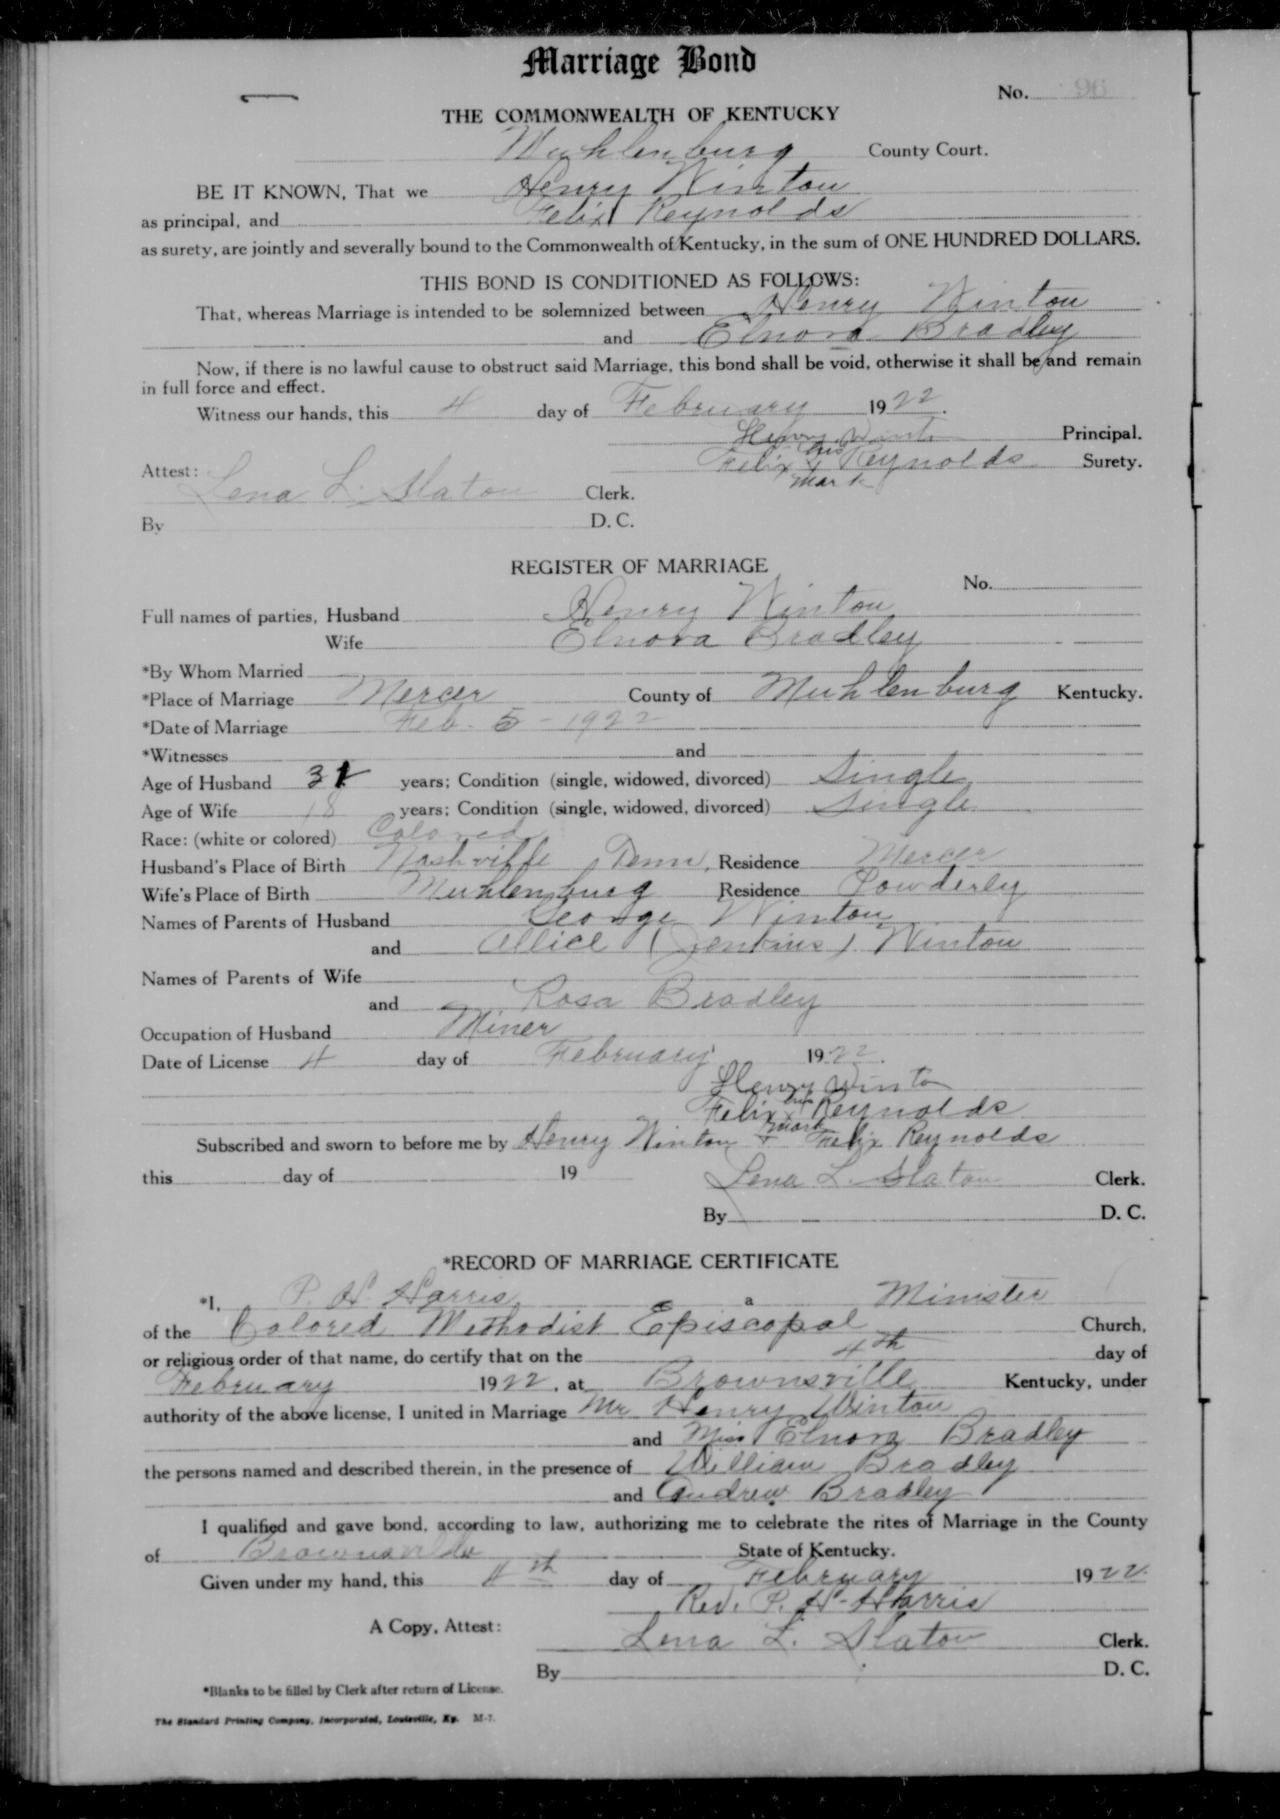 Marriage Bond
No. 96
THE COMMONWEALTH OF KENTUCKY
Muhlenburg County Court.
BE IT KNOWN, That we Henry Winton
as principal, and Felix Reynolds
as surety, are jointly and severally bound to the Commonwealth of Kentucky, in the sum of ONE HUNDRED DOLLARS.
THIS BOND IS CONDITIONED AS FOLLOWS:
That, whereas Marriage is intended to be solemnized between Henry Winton
and Elnora Bradley
Now, if there is no lawful cause to obstruct said Marriage, this bond shall be void, otherwise it shall be and remain
in full force and effect.
Witness our hands, this 4 day of February 1922.
Henry Winto Principal.
Felix his x mark Reynolds Surety.
Attest: Lena L. Slaton Clerk.
By D. C.
REGISTER OF MARRIAGE
No.
Full names of parties, Husband Henry Winton
Wife Elnora Bradley
*By Whom Married
*Place of Marriage Mercer County of Muhlenburg Kentucky.
*Date of Marriage Feb. 5-1922
*Witnesses and
Age of Husband years; Condition (single, widowed, divorced) Single
Age of Wife 18 years; Condition (single, widowed, divorced) Single
Race: (white or colored) Colored
Husband's Place of Birth Nashville, Tenn. Residence Mercer
Wife's Place of Birth Muhlenburg Residence Powderly
Names of Parents of Husband George Winton
and Allice (Jenkins) Winton
Names of Parents of Wife
and Rosa Bradley
Occupation of Husband Miner
Date of License 4 day of February 1922.
Henry Winto
Felix his x mark Reynolds
Subscribed and sworn to before me by Henry Winton + Felix Reynolds
this day of 19
Lena L. Slaton Clerk.
By D. C.
*RECORD OF MARRIAGE CERTIFICATE
*I, P. H. Harris, a Minister
of the Colored Methodist Episcopal Church,
or religious order of that name, do certify that on the 4th day of
February 1922, at Brownsville Kentucky, under
authority of the above license, I united in Marriage Mr Henry Winton
and Miss Elnora Bradley
the persons named and described therein, in the presence of William Bradley
and Andrew Bradley
I qualified and gave bond, according to law, authorizing me to celebrate the rites of Marriage in the County
of Brownsville State of Kentucky.
Given under my hand, this 4th day of February 1922
Rev. P. H. Harris
A Copy, Attest: Lena L. Slaton Clerk.
By D. C.
*Blanks to be filled by Clerk after return of License.
The Standard Printing Company, Incorporated, Louisville, Ky. M-7.